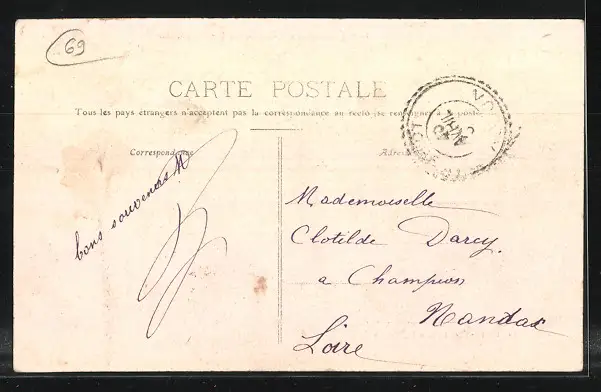 69
CARTE POSTALE
Tous les pays étrangers n'acceptent pas la correspondance au recto (se renseigner à la poste)
Correspondance
bons souvenirs
Mademoiselle
Clotilde Darcy
a Champion
Nandax
Loire